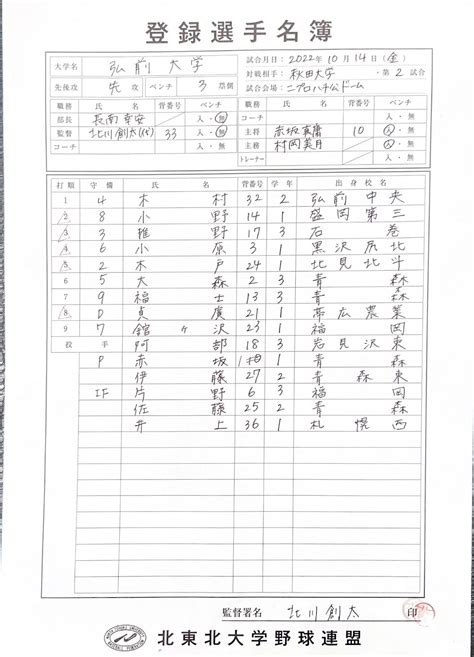 登録選手名簿
大学名 弘前大学 試合月日：2022年10月14日(金)
対戦相手：秋田大学 ・第2試合
先後攻 先攻 ベンチ 3塁側 試合会場：ニプロハチ公ドーム
職務 氏名 背番号 ベンチ 職務 氏名 背番号 ベンチ
部長 長南幸安 入・無 コーチ 入・無
監督 北川創太 33 入・無 主将 赤坂 10 入・無
コーチ 入・無 主務 村岡美月 入・無
トレーナー 入・無
打順 守備 氏名 背番号 学年 出身校名
1 4 木村 32 2 弘前中央
2 8 小野 14 1 盛岡第三
3 3 雅野 17 3 石巻
4 6 小原 3 1 黒沢尻北
5 2 木戸 24 1 北見北斗
6 5 大森 2 3 青森
7 9 福士 13 3 青森
8 D 眞廣 21 1 帯広農業
9 7 舘ヶ沢 23 1 福岡
投手 阿部 18 3 岩見沢東
P 赤坂 1 青森
伊藤 27 2 青森東
IF 片野 6 3 福岡
佐藤 25 2 青森
井上 36 1 札幌西
監督署名 北川創太 印
北東北大学野球連盟